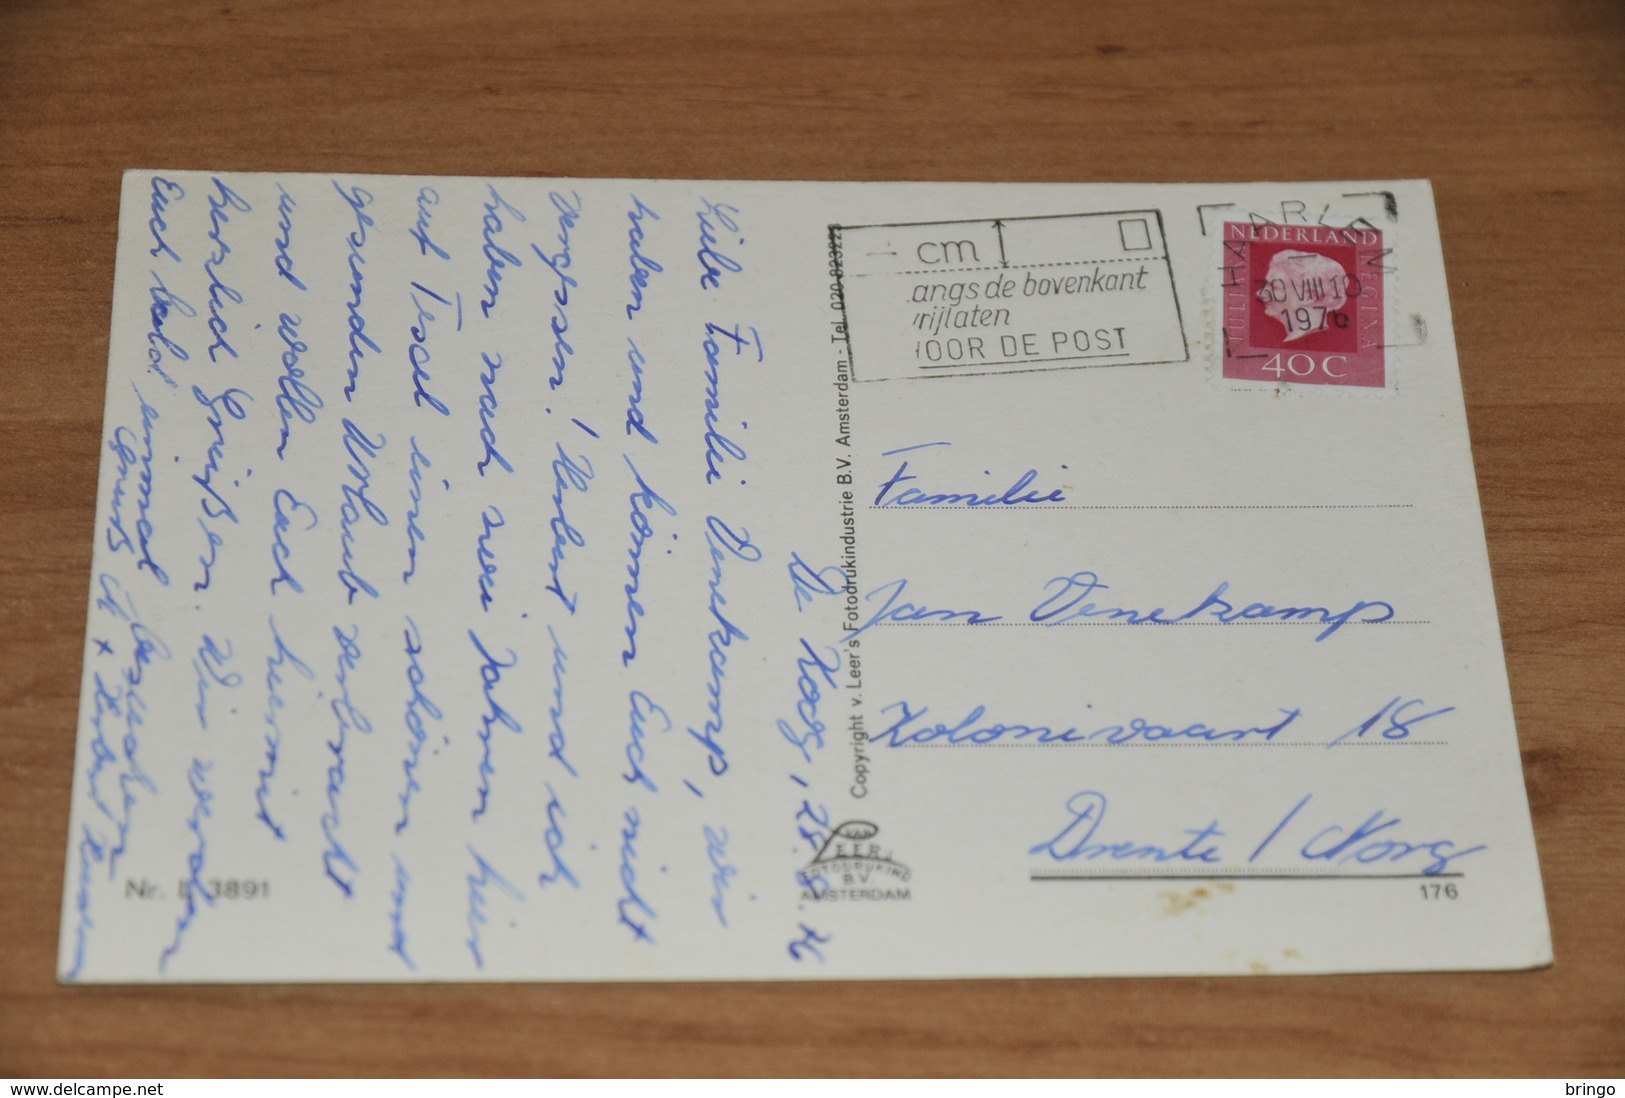 De Koog, 28.8.76
Liebe Familie Venekamp, wir
haben und können Euch nicht
vergessen! Hubert und ich
haben nach zwei Jahren hier
auf Texel einen schönen und
gesunden Urlaub verbracht
und wollen Euch hiermit
herzlich Grüßen. Wir werden
Euch bald einmal besuchen
Gruß
Nr. E 3891
Copyright v. Leer's Fotodrukindustrie B.V. Amsterdam - Tel. 020-823223
VAN
LEER'S
FOTODRUKIND
B.V.
AMSTERDAM
cm
langs de bovenkant
vrijlaten
VOOR DE POST
HAARLEM
30 VIII 10
1976
NEDERLAND
JULIANA REGINA
40 C
Familie
Jan Venekamp
Kolonievaart 18
Drente / Norg
176
delcampe.net
bringo